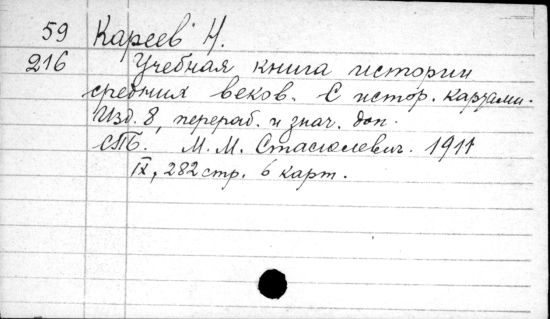 59 Кареев Н.
216 Учебная книга истории
средних веков. С истор. картами.
Изд. 8, перераб. и знач. доп.
СПБ. М. М. Стасюлевич. 1911
IX, 282 стр. 6 карт.